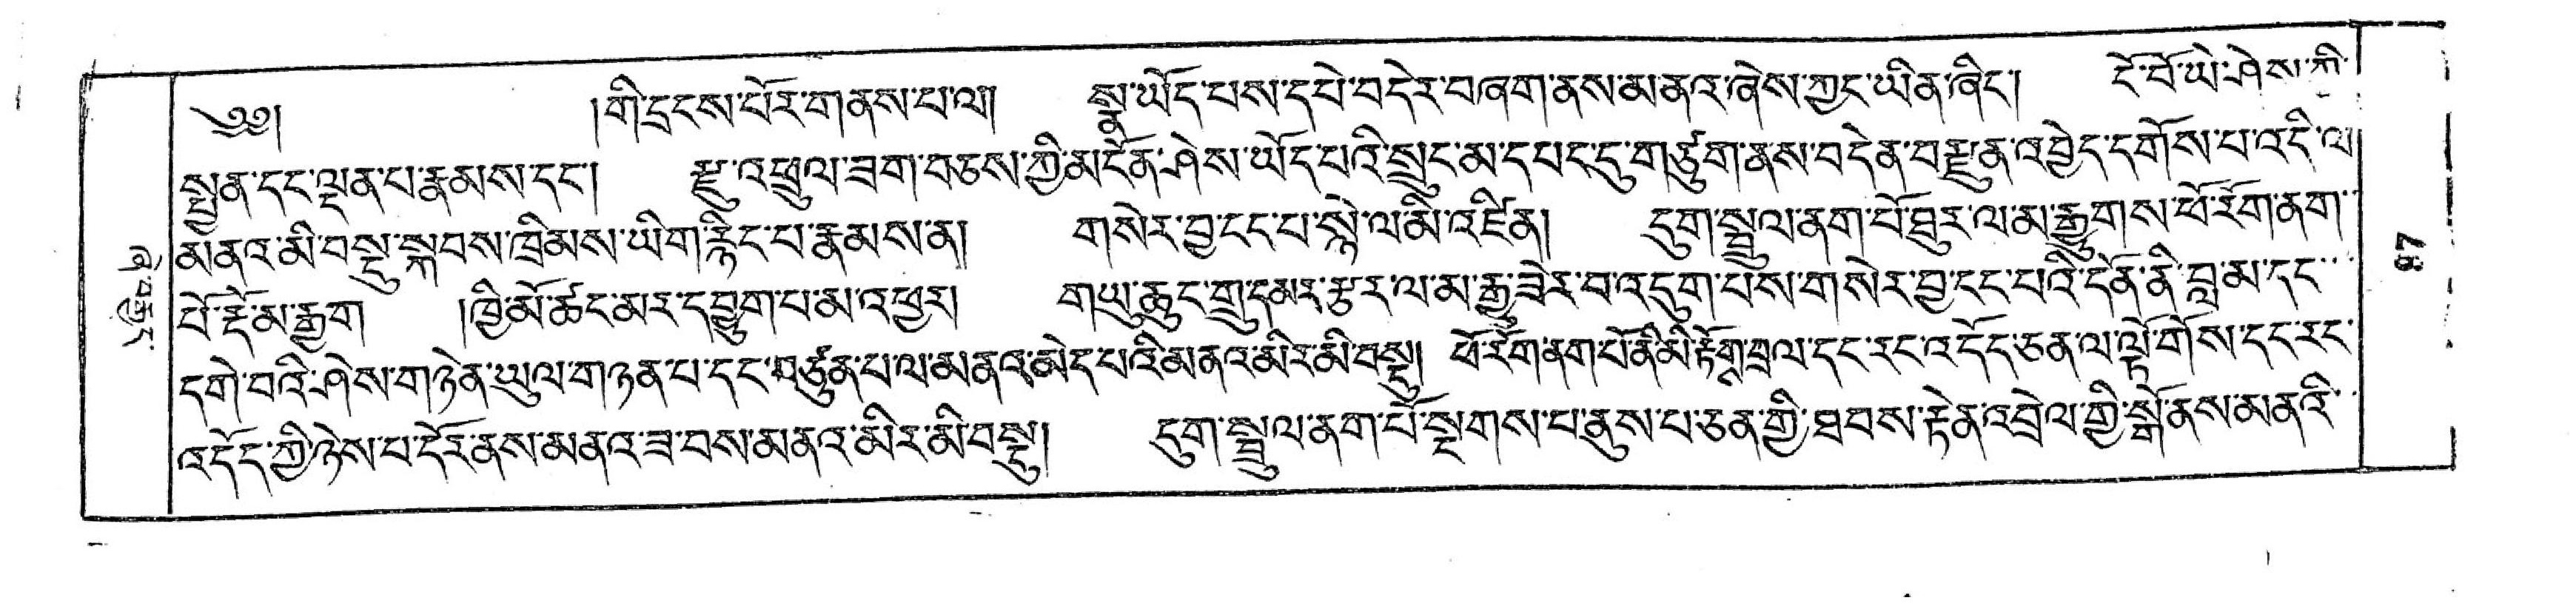 ༄༅། །གི་དྲངས་པོར་གནས་པ་ལ། སྣ་ཡོད་པས་དཔེ་བདེར་བཞག་ནས་མནའ་ཞེས་ཀྱང་ཡིན་ཞིང་། ངོ་བོ་ཡེ་ཤེས་ཀི་
སྤྱན་དང་ལྡན་པ་རྣམས་དང་། རྫུ་འཕྲུལ་ཟག་བཅས་ཀྱི་མངོན་ཤེས་ཡོད་པའི་སྲུང་མ་དཔང་དུ་གཙུག་ནས་བདེན་བརྫུན་འབྱེད་དགོས་པ་འདི་ལ།
མནའ་མི་བསྡུ་སྐབས་ཁྲིམས་ཡིག་རྙིང་པ་རྣམས་ན། གསེར་བྱ་ངང་པ་སྙེ་ལ་མི་འཛིན། དུག་སྦྲུལ་ནག་པོ་བྲར་ལ་མ་རྒྱུགས་ཕོ་རོག་ནག་
པོ་རྡོ་མ་རྒྱག །ཁྱི་མོ་ཚང་མར་དབྱུག་པ་མ་འཕྱར། གཡུ་ཆུང་གྲུ་དམར་རྩར་ལ་མ་རྒྱུ་ཟེར་བ་འདུག་པས་གསེར་བྱ་ངང་པའི་དོན་ནི་བླ་མ་དང་
དགེ་བའི་ཤེས་གཉེན་ཡུལ་གཉན་པ་དང་བཙུན་པ་ལ་མནའ་མེད་པའི་མནའ་མིར་མི་བསྡུ། ཕོ་རོག་ནག་པོ་ནི་མི་རྟོག་བྲལ་དང་རང་འདོད་ཅན་ལ་ལྟོ་གོས་དང་རང་
འདོད་ཀྱི་ཉེས་པ་དོར་ནས་མནའ་ཟ་བས་མནའ་མིར་མི་བསྡུ། དུག་སྦྲུལ་ནག་པོ་སྔགས་པ་ནུས་པ་ཅན་གྱི་ཐབས་རྟེན་འབྲེལ་གྱི་སྒོ་ནས་མནའི་